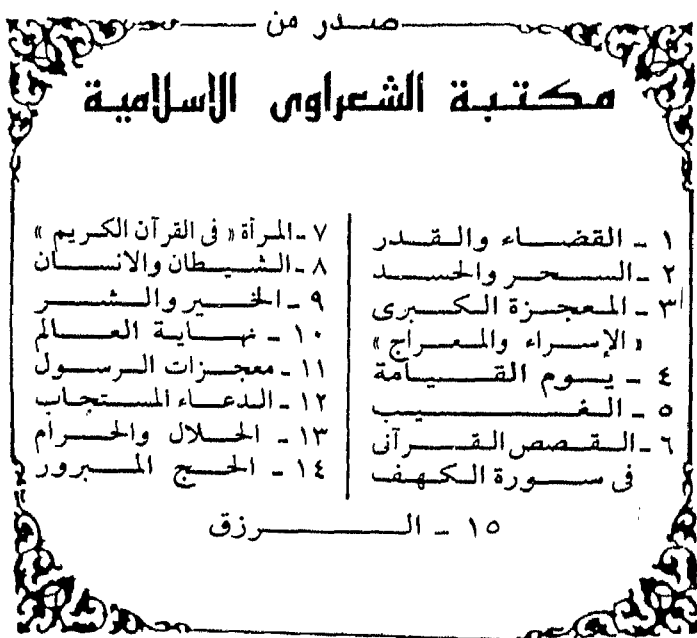 صدر من
مكتبة الشعراوى الاسلامية
١ - القضاء والقدر
٢ - السحر والحسد
٣ - المعجزة الكبرى
« الإسراء والمعراج »
٤ - يوم القيامة
٥ - الغيب
٦ - القصص القرآنى
فى سورة الكهف
٧ - المرأة « فى القرآن الكريم »
٨ - الشيطان والانسان
٩ - الخير والشر
١٠ - نهاية العالم
١١ - معجزات الرسول
١٢ - الدعاء المستجاب
١٣ - الحلال والحرام
١٤ - الحج المبرور
١٥ - الرزق